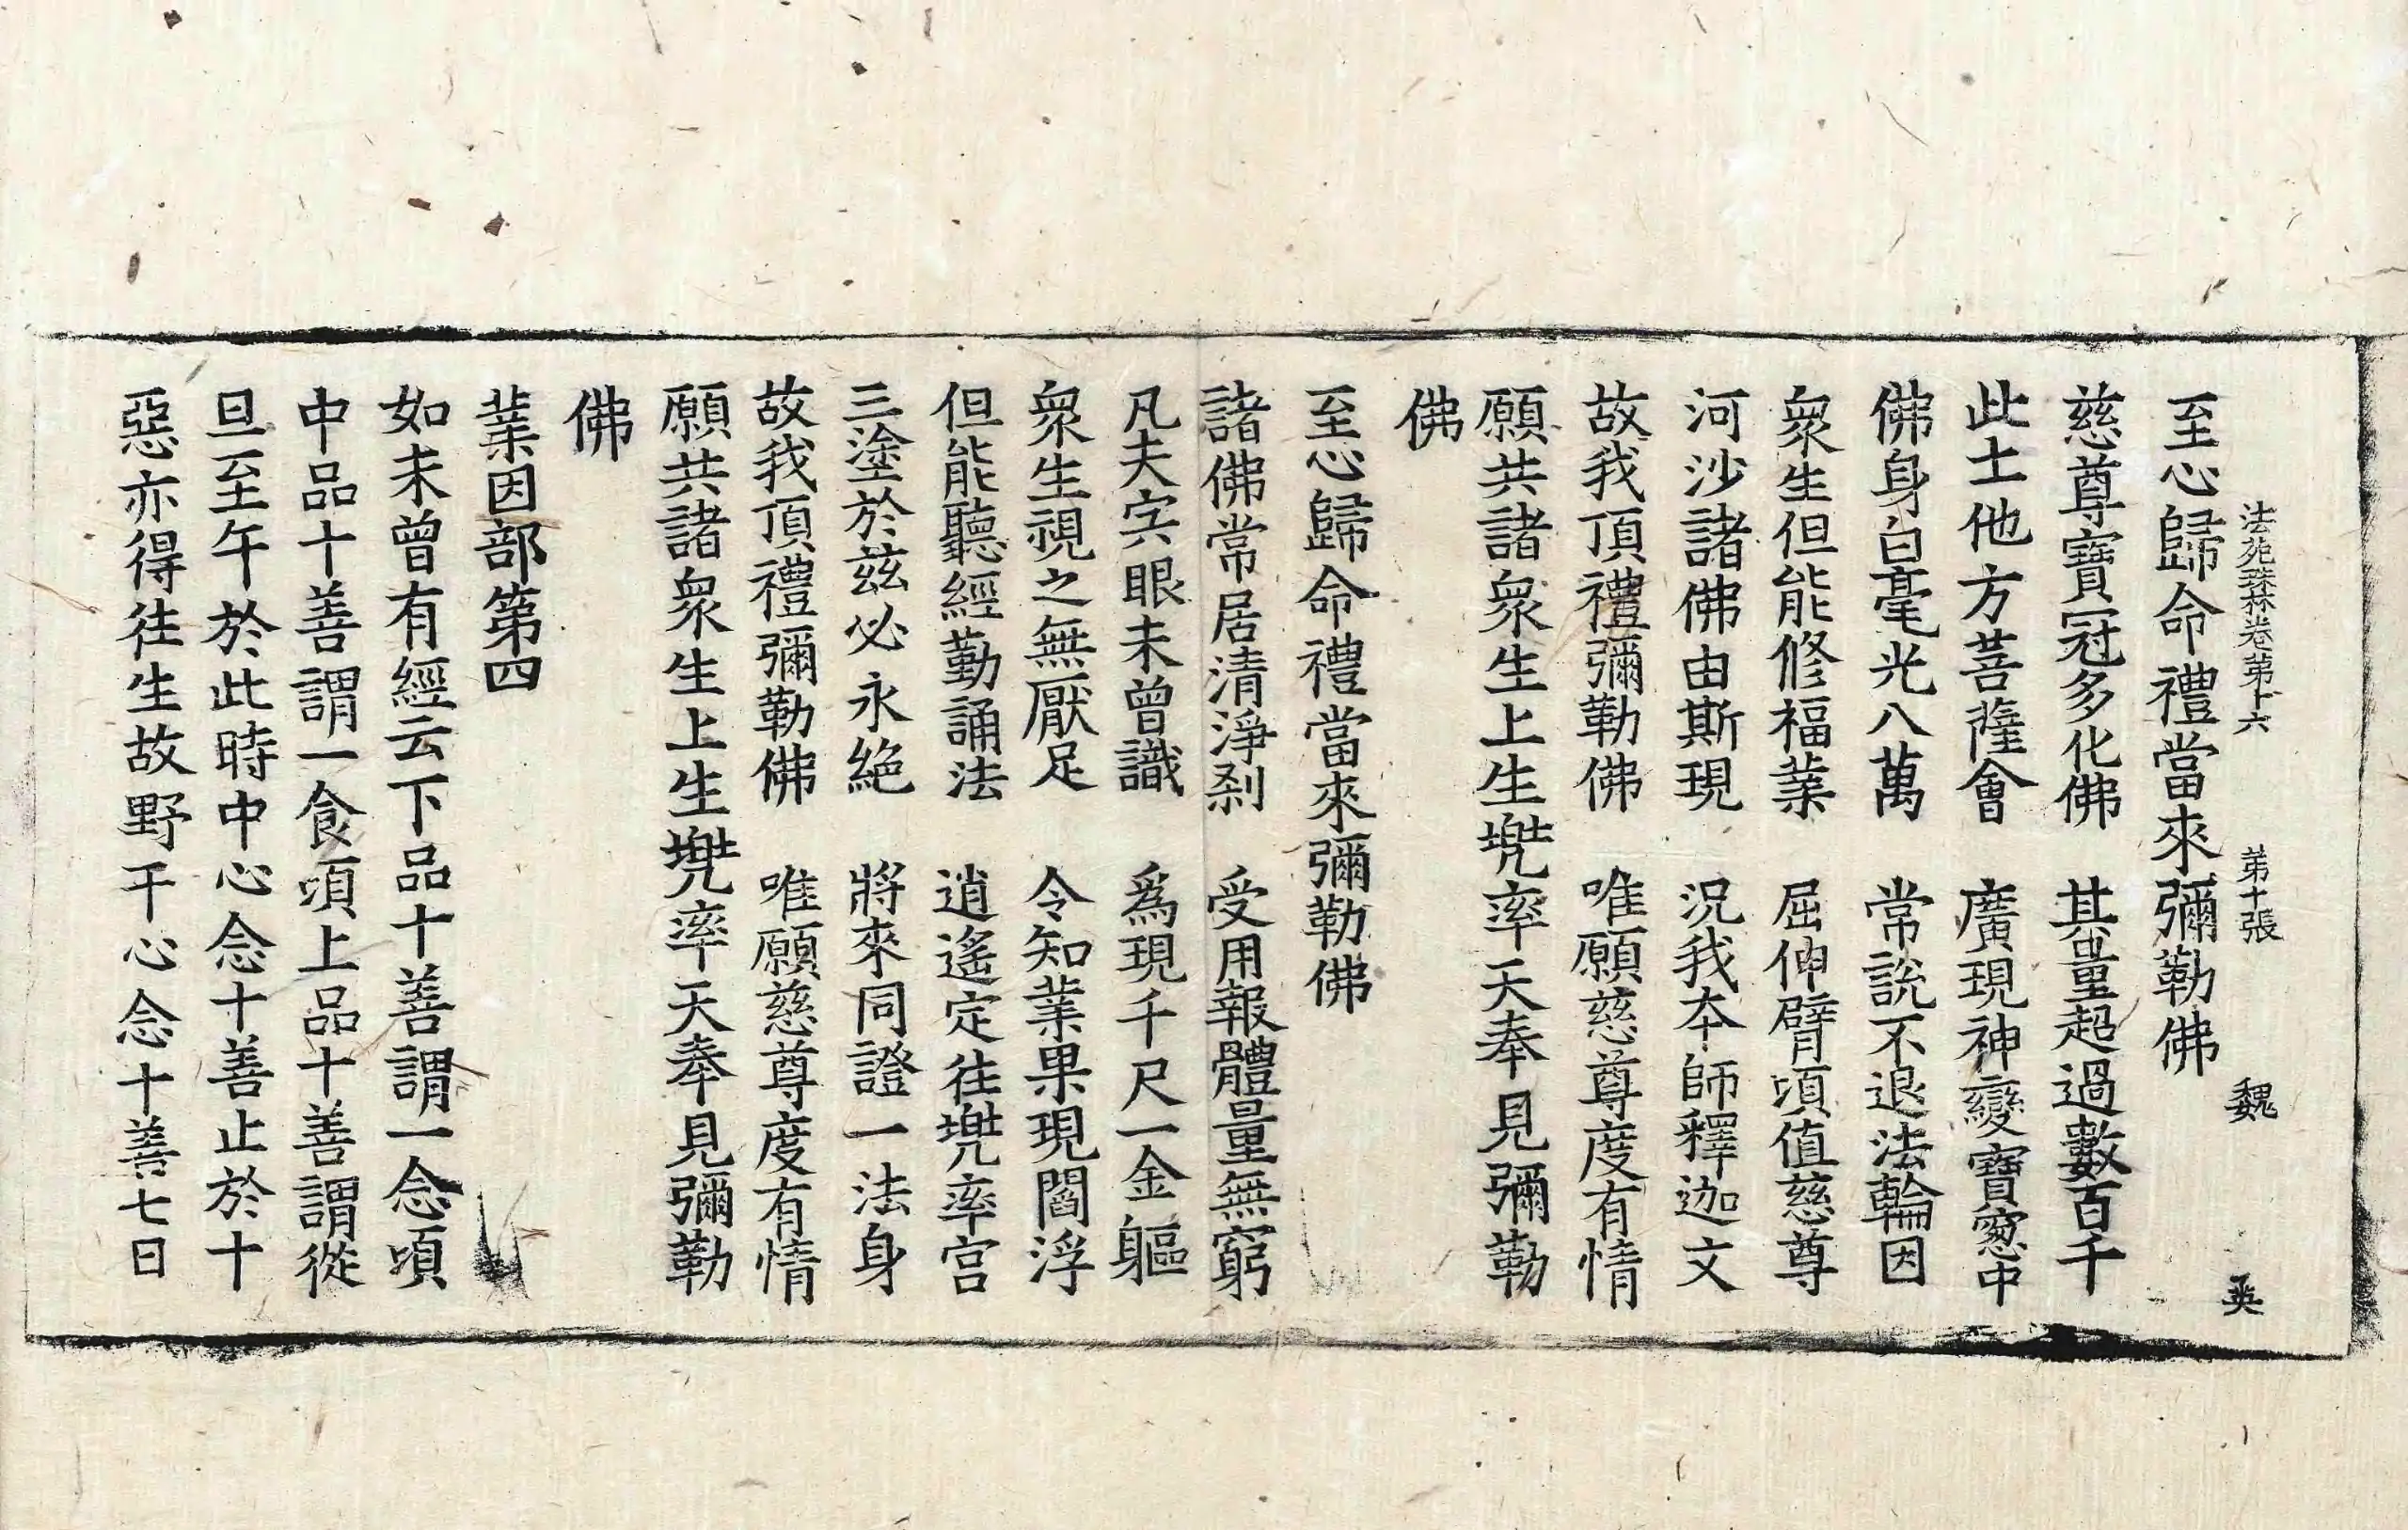 法苑珠林卷第十六 第十張 魏 英
至心歸命禮當來彌勒佛
慈尊寶冠多化佛 其量超過數百千
此土他方菩薩會 廣現神變寶窓中
佛身白毫光八萬 常說不退法輪因
衆生但能修福業 屈伸臂頃值慈尊
河沙諸佛由斯現 況我本師釋迦文
故我頂禮彌勒佛 唯願慈尊度有情
願共諸衆生上生兠率天奉見彌勒
佛
至心歸命禮當來彌勒佛
諸佛常居清淨刹 受用報體量無窮
凡夫宍眼未曾識 爲現千尺一金軀
衆生視之無厭足 令知業果現閻浮
但能聽經勤誦法 逍遙定往兠率宫
三塗於兹必永絶 將來同證一法身
故我頂禮彌勒佛 唯願慈尊度有情
願共諸衆生上生兠率天奉見彌勒
佛
業因部第四
如未曾有經云下品十善謂一念頃
中品十善謂一食頃上品十善謂從
旦至午於此時中心念十善止於十
惡亦得往生故野干心念十善七日